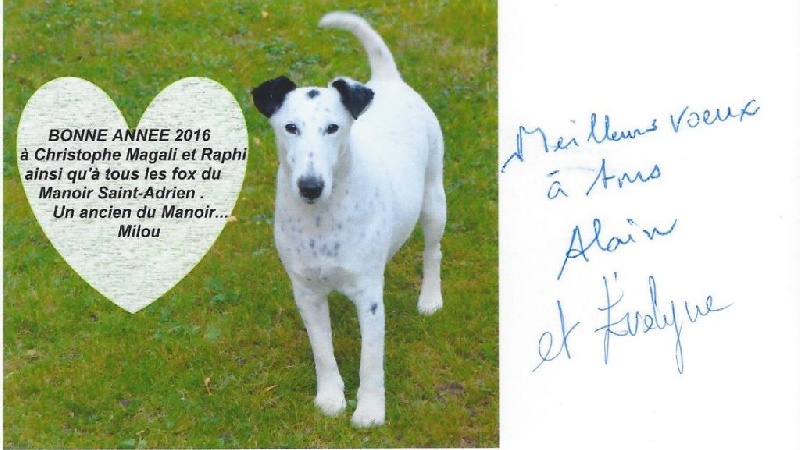 BONNE ANNEE 2016
à Christophe Magali et Raphi
ainsi qu'à tous les fox du
Manoir Saint-Adrien .
Un ancien du Manoir...
Milou
Meilleurs voeux
à tous
Alain
et Evelyne